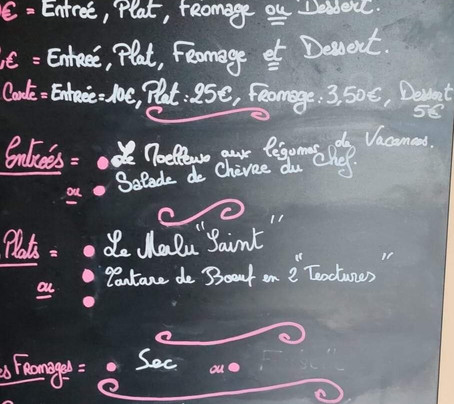 € = Entreé, Plat, Fromage ou Dessert.
€ = Entreé, Plat, Fromage et Dessert.
Carte = Entreé = 10€, Plat : 25€, Fromage : 3,50€, Dessert
5€
Entreés = Le Moelleux aux légumes de Vacances.
ou Salade de Chèvre du Chef.
Plats = Le Merlu "Saint"
ou Tartare de Boeuf en 2 "Textures"
es Fromages = Sec ou